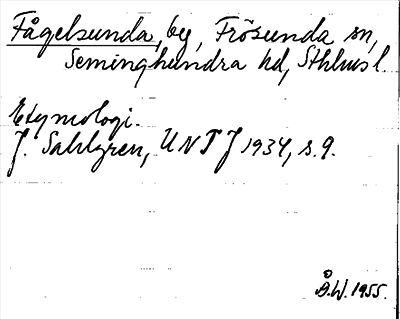 Fågelsunda, by, Frösunda sn,
Seminghundra hd, Sthlms l.
Etymologi.
J. Sahlgren, UNTJ 1934, s. 9.
Å.W. 1955.